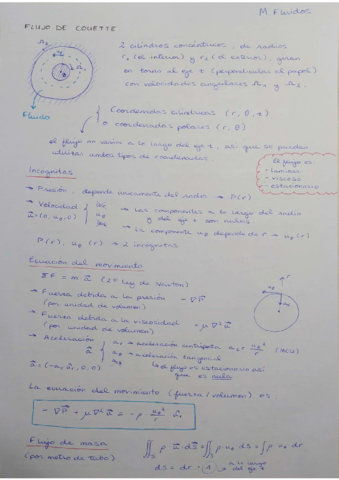 M Fluidos
FLUJO DE COUETTE
2 cilindros concéntricos, de radios
r₁ (el interior) y r₂ (el exterior), giran
en torno al eje z (perpendicular al papel)
con velocidades angulares Ω₁ y Ω₂.
Fluido
Coordenadas cilíndricas (r, θ, z)
o coordenadas polares (r, θ)
el flujo no varía a lo largo del eje z, así que se pueden
utilizar ambos tipos de coordenadas.
El flujo es
- laminar
- viscoso
- estacionario
Incógnitas
→ Presión, depende únicamente del radio → P(r)
→ Velocidad
→ Las componentes a lo largo del radio
y del eje z son nulas
→ La componente uθ depende de r → uθ(r)
P(r), uθ(r) → 2 incógnitas
Ecuación del movimiento
ΣF = m·a (2ª ley de Newton)
→ Fuerza debida a la presión - ∇P
(por unidad de volumen)
→ Fuerza debida a la viscosidad + μ∇²u
(por unidad de volumen)
→ Aceleración
→ aceleración centrípeta
(MCU)
→ aceleración tangencial
el flujo es estacionario así
que es nula
La ecuación del movimiento (fuerza/volumen) es
- ∇P + μ∇²u = -ρ uθ²/r
Flujo de masa
(por metro de tubo)
dS = dr · 1
a lo largo
del eje z